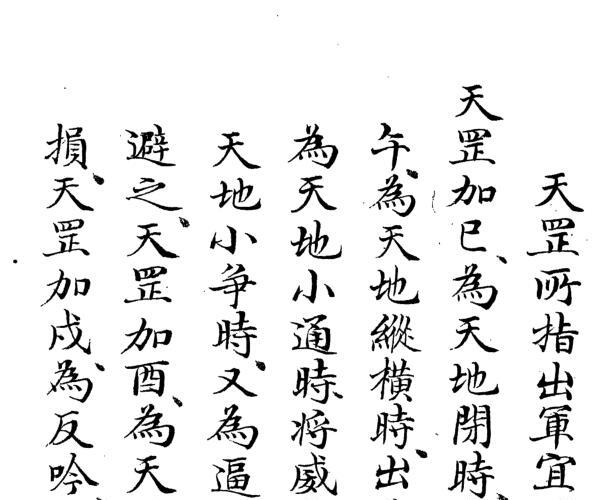 天罡所指出軍宜
天罡加巳、為天地閉時、
午、為天地縱橫時、出
為天地小通時、将威
天地小争時、又為逼
避之、天罡加酉、為天
損、天罡加戌、為反吟、